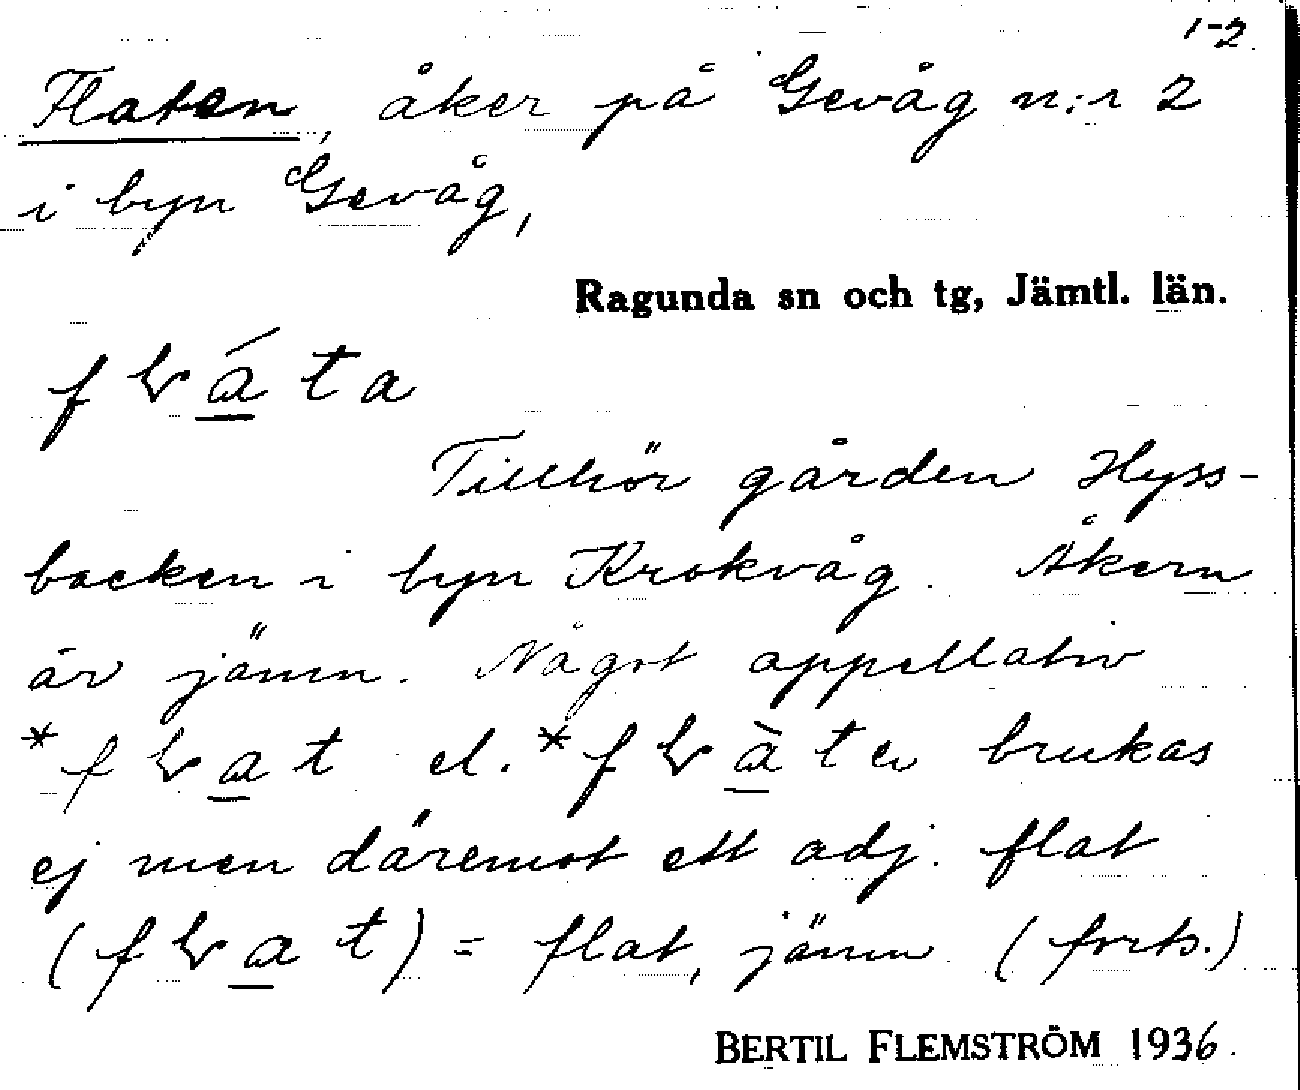 1-2.
Flaten, åker på Gevåg n:r 2
i byn Gevåg,
Ragunda sn och tg, Jämtl. län.
Tillhör gården Hyss-
backen i byn Krokvåg. Åkern
är jämn. Något appellativ
el. brukas
ej men däremot ett adj. flat
= flat, jämn (forts.)
BERTIL FLEMSTRÖM 1936.